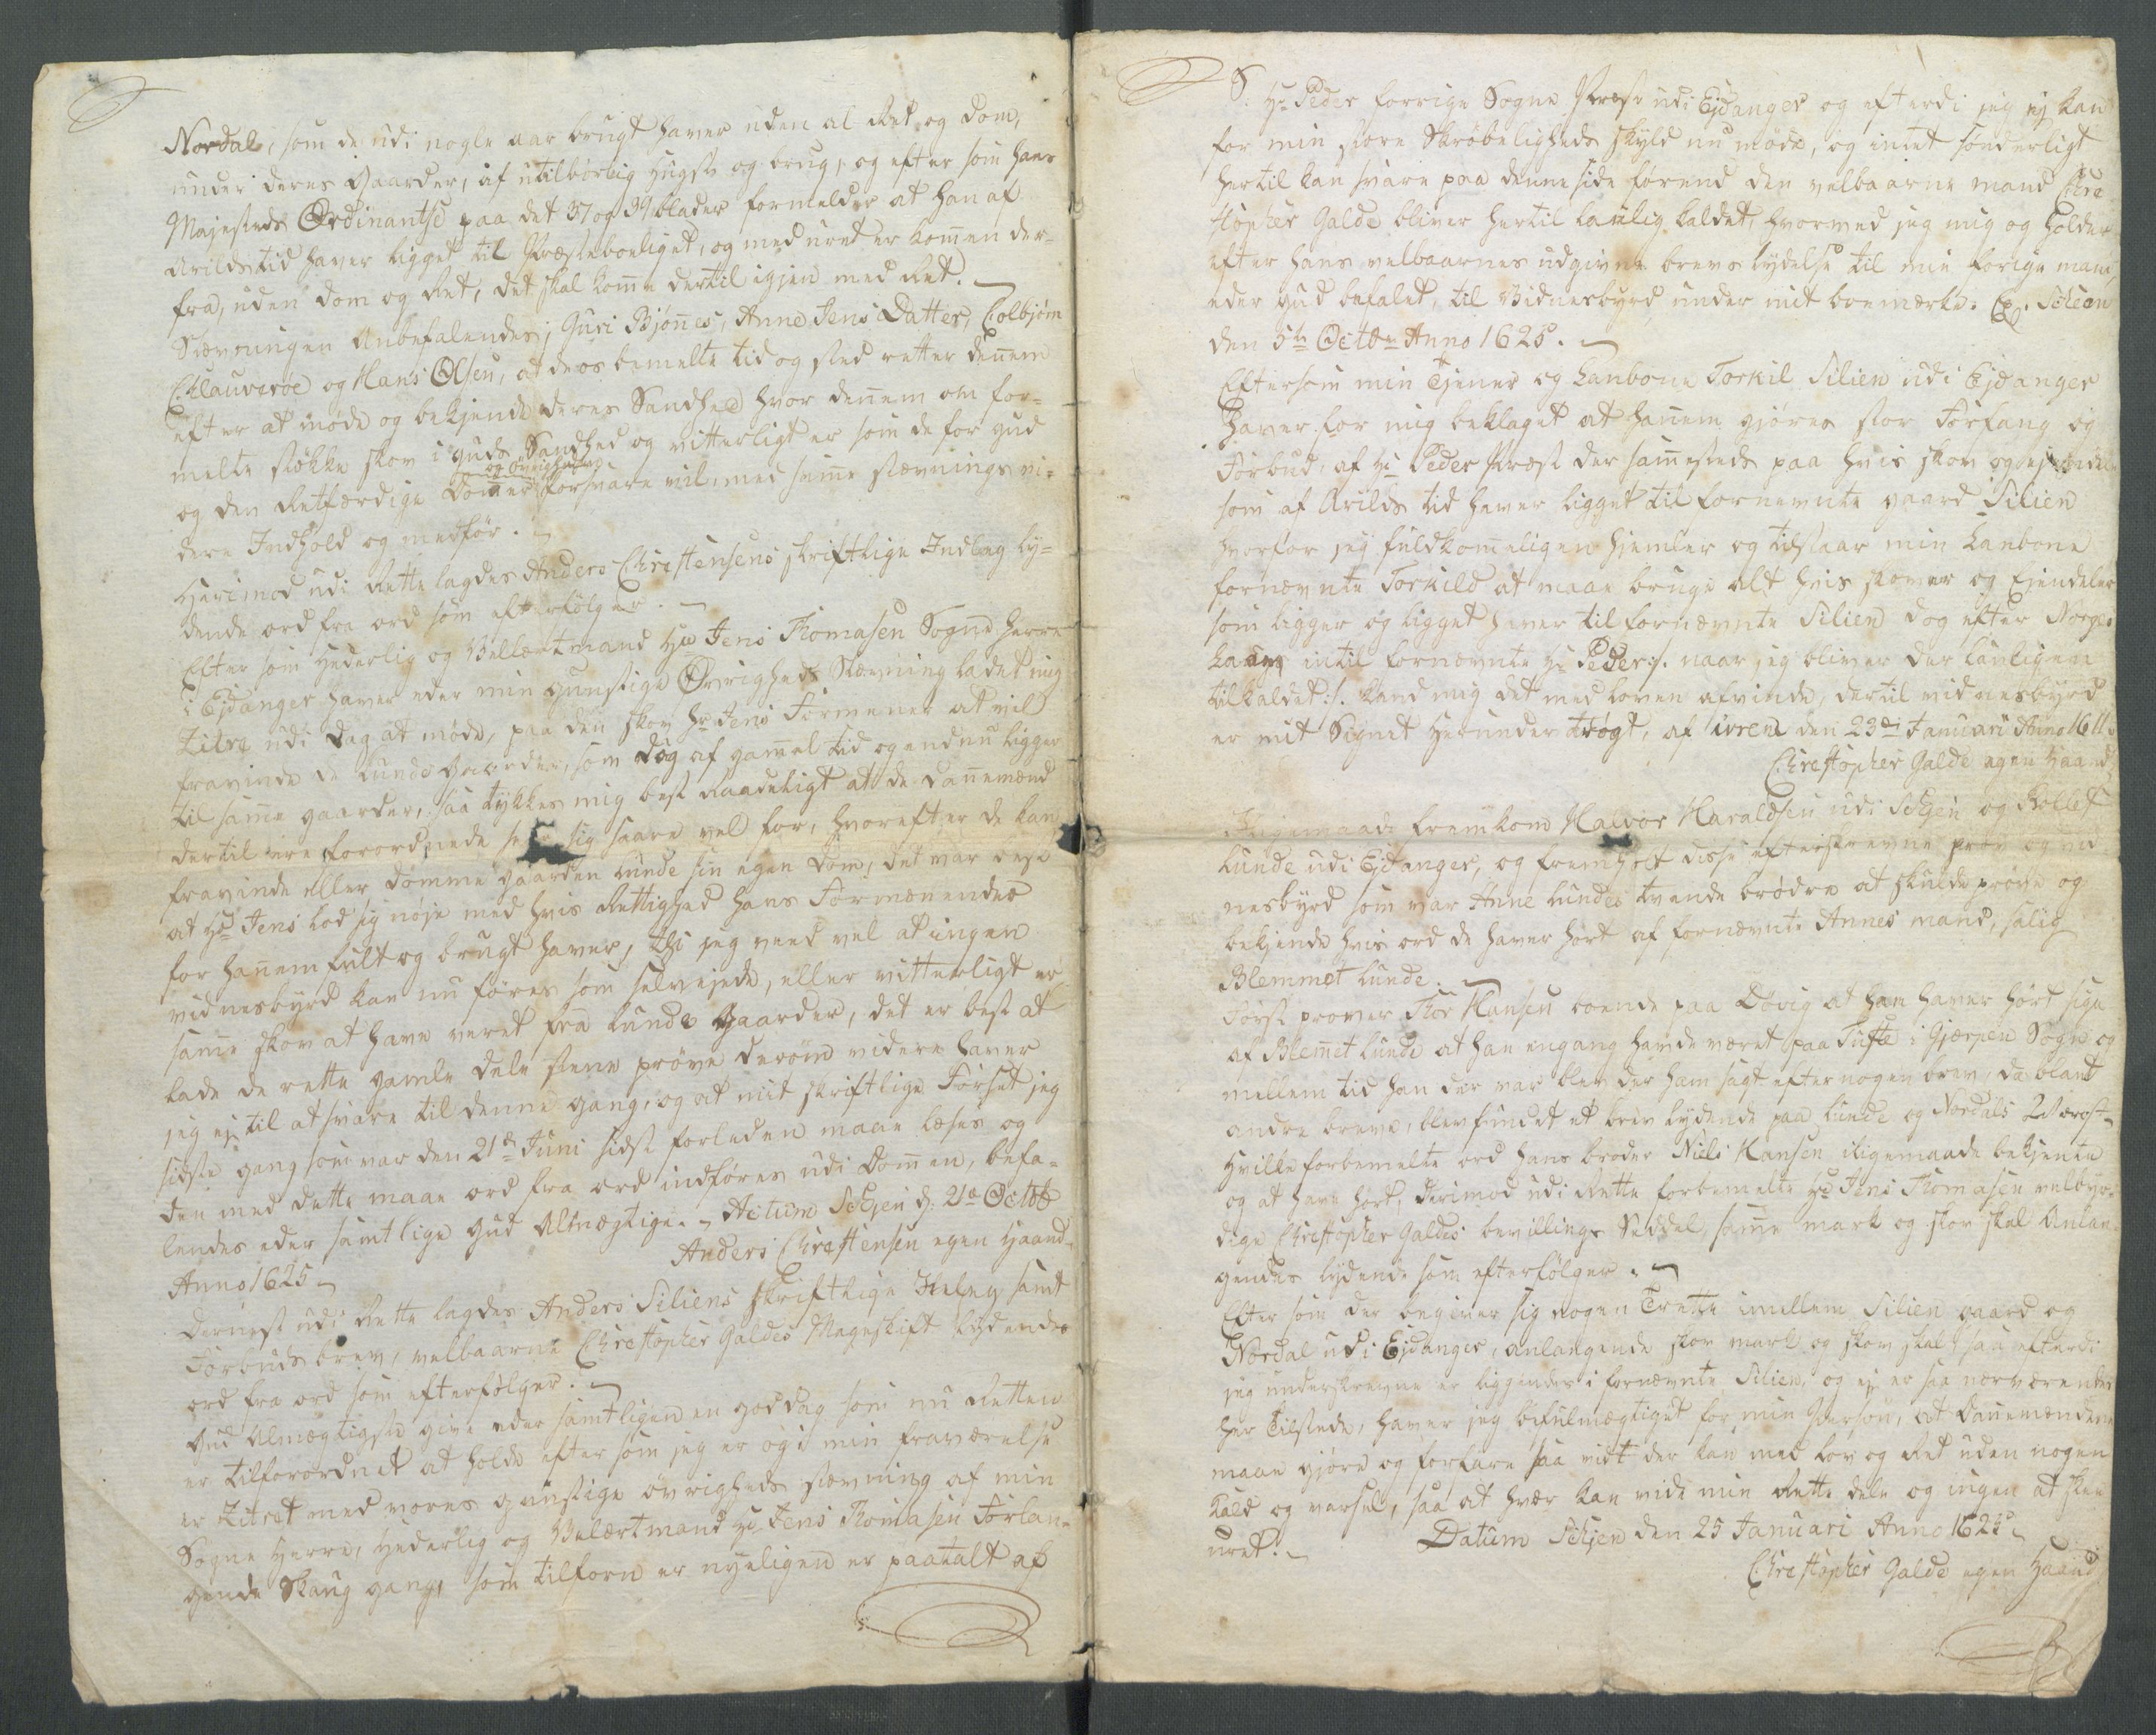 Nordal, som de udi nogle aar brugt haver uden al Ret og Dom,
under deres Gaarder, af utilbørlig hugst og brug, og efter som hans
Majesteds Ordinantse paa det 37 og 39 blader formelder at han af
Arilds tid haver ligget til Præsteboeliget, og med uret er kommen der-
fra, uden dom og Ret, det skal komme dertil igjen med Ret.
Stævningen Anbefalendes; Guri Bjønnes, Anne Jens Datter, Colbjørn
Clauveroe og Hans Olsen, at de os bemelte tid og sted retter dennem
efter at møde og bekjende deres Sandhed hvor dennem om for-
melte støkke skov i guds Sandhed og vitterligt er som de for gud
og øvrigheden
og den Retfærdige Dommer forsvare vil, med samme stævnings vi-
dere Indhold og medfør.
Herimod udi Rette lagdes Anders Christensens skriftlige Indleg ly-
dende ord fra ord som efterfølger.
Efter som Hederlig og Vellærtmand Hr Jens Thomasen Sogne Herre
i Ejdanger haver eder min gunstige Øvrigheds Stævning ladet mig
Citere udi Dag at møde, paa den skov Hr Jens Formener at vil
fravinde de Lunde Gaarder, som dog af gammel tid og endnu ligger
til samme gaarder, saa tykkes mig best Raadeligt at de Dannemænd
dertil ere forordnede seer sig saare vel for, hvorefter de kan
fravinde eller dømme gaarden Lunde sin egen Dom, det var best
at Hr Jens lod sig nøje med hvis Rettighed hans Formænender
for hannem fult og brugt haver, thi jeg veed vel at ingen
vidnesbyrd kan nu føres som selvejede, eller vitterligt er
samme skov at have veret fra Lunde Gaarder, det er best at
lade de rette gamle dele stene prøve derom videre haver
jeg ej til at svare til denne gang, og at mit skriftlige Forset jeg
sidste gang som var den 21de Juni sidst forleden maae læses og
den med dette maae ord fra ord indføres udi Dommen, befa-
lendes eder samtlige Gud Almægtige. Actum Schjen d. 21e Octob
Anno 1625
Anders Christensen egen Haand
Dernest udi Rette lagdes Anders Siliens skriftlige Inleg samt
Forbuds brev, velbaarne Christopher Galdes Mageskift lydende
ord fra ord som efterfølger.
Gud Almægtigste give eder samtligen en god dag som nu Retten
er tilforordnet at holde efter som jeg er og i min fraværelse
er Citeret med vores gunstige øvrigheds stævning af min
Sogne Herre, Hederlig og Velærtmand Hr Jens Thomasen Forlan-
gende Skaug gang, som tilforn er nyeligen er paatalt af
S. Hr Peder forrige Sogne Præst udi Ejdanger og efterdi jeg ej kan
for min store Skrøbeligheds skyld nu møde, og intet sønderligt
hertil kan svare paa denne side førend den velbaarne mand Chre
stopher Galde bliver hertil lauvlig kaldet, hvormed jeg mig og holder
efter hans velbaarnes udgivne brevs lydelse til min forige mand,
eder gud befalet, til Vidnesbyrd under mit bomærke. Ex. Schien
den 5te Octbr Anno 1625.
Eftersom min Tjener og Lanbone Torkil Silien udi Ejdanger
haver for mig beklaget at hannem gjøres stor Forfang og
Forbud, af Hr Peder Præst der sammesteds paa hvis skov og ejendele
som af Arilds tid haver ligget til fornevnte gaard Silien
hvorfor jeg fuldkommeligen hjemler og tilstaar min Lanbone
fornævnte Torkild at maae bruge alt hvis skover og Ejendeler
som ligger og ligget haver til fornævnte Silien dog efter Norges
Laug intil fornævnte Hr Peder :/: naar jeg bliver der lauligen
tilkaldet :/: kand mig det med loven afvinde, dertil vidnesbyrd
er mit Signet herunder trøgt, af den 23de Januari Anno 1611
Christopher Galde egen Haand
Ligemaade fremkom Halvor Haraldsen udi Schjen og Kollet
Lunde udi Ejdanger, og fremholt disse efterskrevne prøv og vid
nesbyrd som var Anne Lundes tvende brødre at skulde prøve og
bekjende hvis ord de haver hørt af fornævnte Annes mand, salig
Blemmet Lunde.
Først prover Thor Hansen boende paa Døvig at han haver hørt sige
af Blemmet Lunde at han engang havde været paa Tufte i Gjerpen Sogn og
mellem tid han der var blev der ham sagt efter nogen brev, da blant
andre breve, blev fundet et brev lydende paa Lunde og Nordals
Hville forbemelte ord hans broder Niels Hansen iligemaade bekjente
og at have hørt, derimod udi Rette forbemelte Hr Jens Thomasen velbyr-
dige Christopher Galdes bevillings Seddel, samme mark og skov skel Anlan-
gendes lydende som efterfølger.
Efter som der begiver sig nogen Trette imellem Silien gaard og
Nordal udi Ejdanger, anlangende skov mark og skov skel, saa efterdi
jeg underskrevne er liggendes i fornævnte Silien, og ej er saa nærværendes
her Tilstede, haver jeg befulmægtiget for min Person, at Dannemændene
maae gjøre og forfare saa vidt der kan med lov og Ret uden nogen
Kald og varsel, saa at hver kan vide min Rette dele og ingen at skee
uret.
Datum Schjen den 25 Januari Anno 1625
Christopher Galde egen Haand